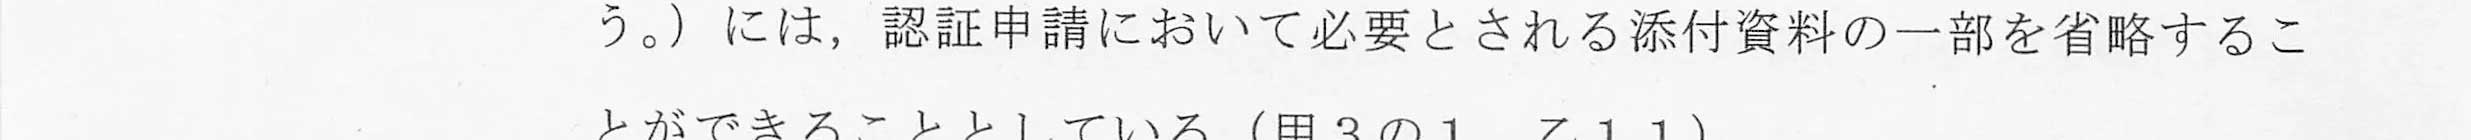 う。）には，認証申請において必要とされる添付資料の一部を省略するこ
とができることとしている（甲３の１，乙１１）